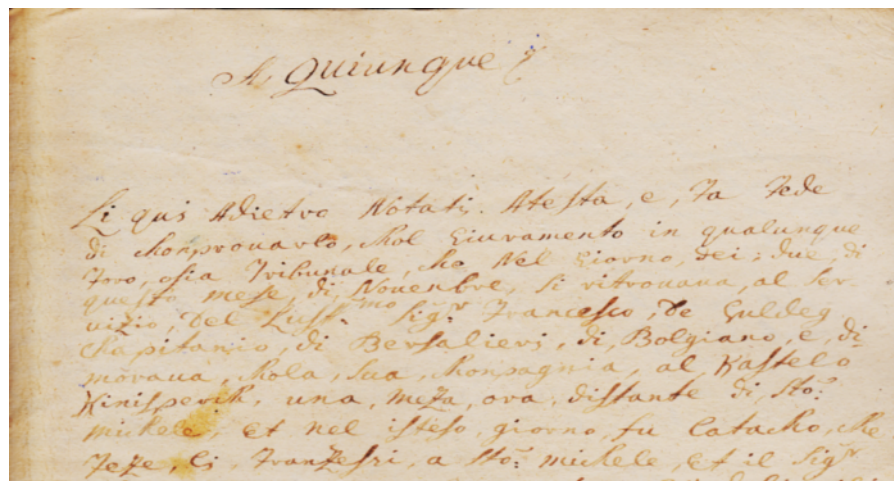 A Quiunque
Li qui Adietro Notati. Atesta, e, Fa Fede
di Konprovarlo, Kol Giuramento in qualunque
Foro, osia Tribunale, Ke Nel Giorno, dei; due, di
questo mese, di, Novenbre, Si ritrovava, al Ser-
vizio, Del Lussmo Sigr: Francesco, De Guldeg
Kapitanio, di Bersalieri, di, Bolgiano, e, di
morava, Kola, sua, Konpagnia, al, Kastelo
Kinisperik, una, meza, ora, distante di, Sto:
mickele, et nel isteso, giorno, fu Latacko, che
Feze, Li, Franzesri, a Sto: mickele, et il Sigr